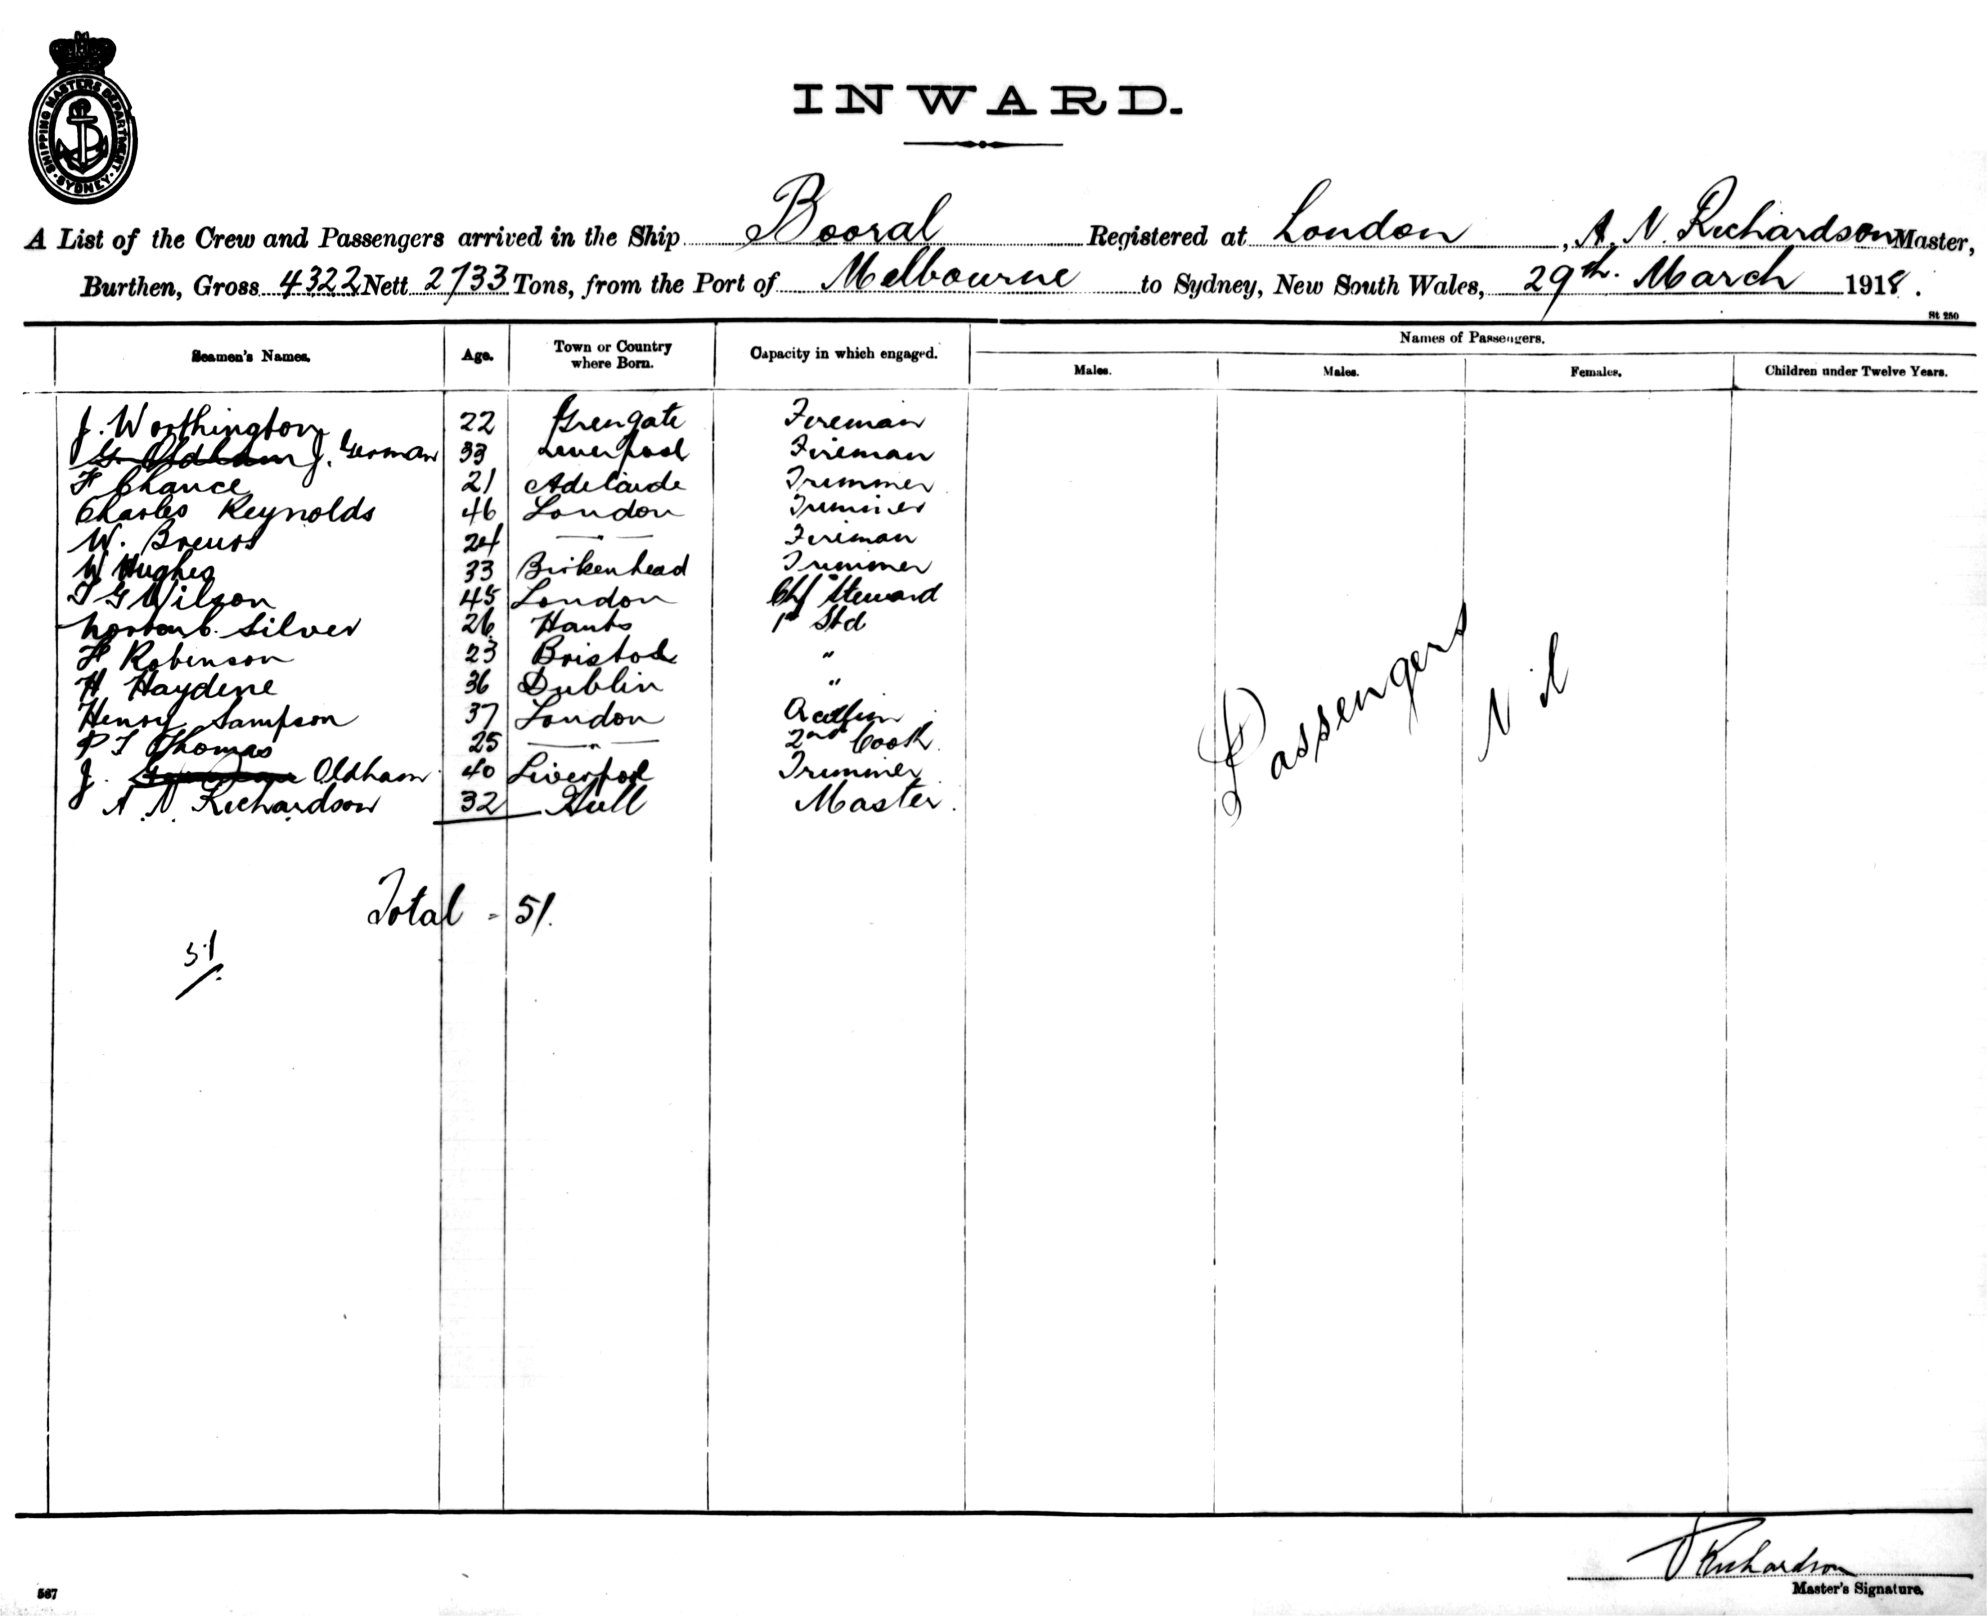 SHIPPING MASTERS DEPARTMENT · SYDNEY ·
INWARD.
A List of the Crew and Passengers arrived in the Ship Booral Registered at London, A. N. Richardson Master,
Burthen, Gross 4322 Nett 2733 Tons, from the Port of Melbourne to Sydney, New South Wales, 29th. March 1918.
St 250
Seamen's Names. Age. Town or Country where Born. Capacity in which engaged. Names of Passengers.
Males. Males. Females. Children under Twelve Years.
J. Worthington 22 Grengate Fireman
G. Oldham J. German 33 Liverpool Fireman
F Chance 21 Adelaide Trimmer
Charles Reynolds 46 London Trimmer
W. 24 — — Fireman
W Hughes 33 Birkenhead Trimmer
T G Wilson 45 London Chf Steward
Silver 26 Hants 1st Std
F Robinson 23 Bristol "
H Haydene 36 Dublin "
Henry Sampson 37 London
P T Thomas 25 — " — 2nd Cook
J. Oldham 40 Liverpool Trimmer
A. N. Richardson 32 Hull Master.
Passengers
Nil
Total = 51.
51
Richardson
Master's Signature.
567